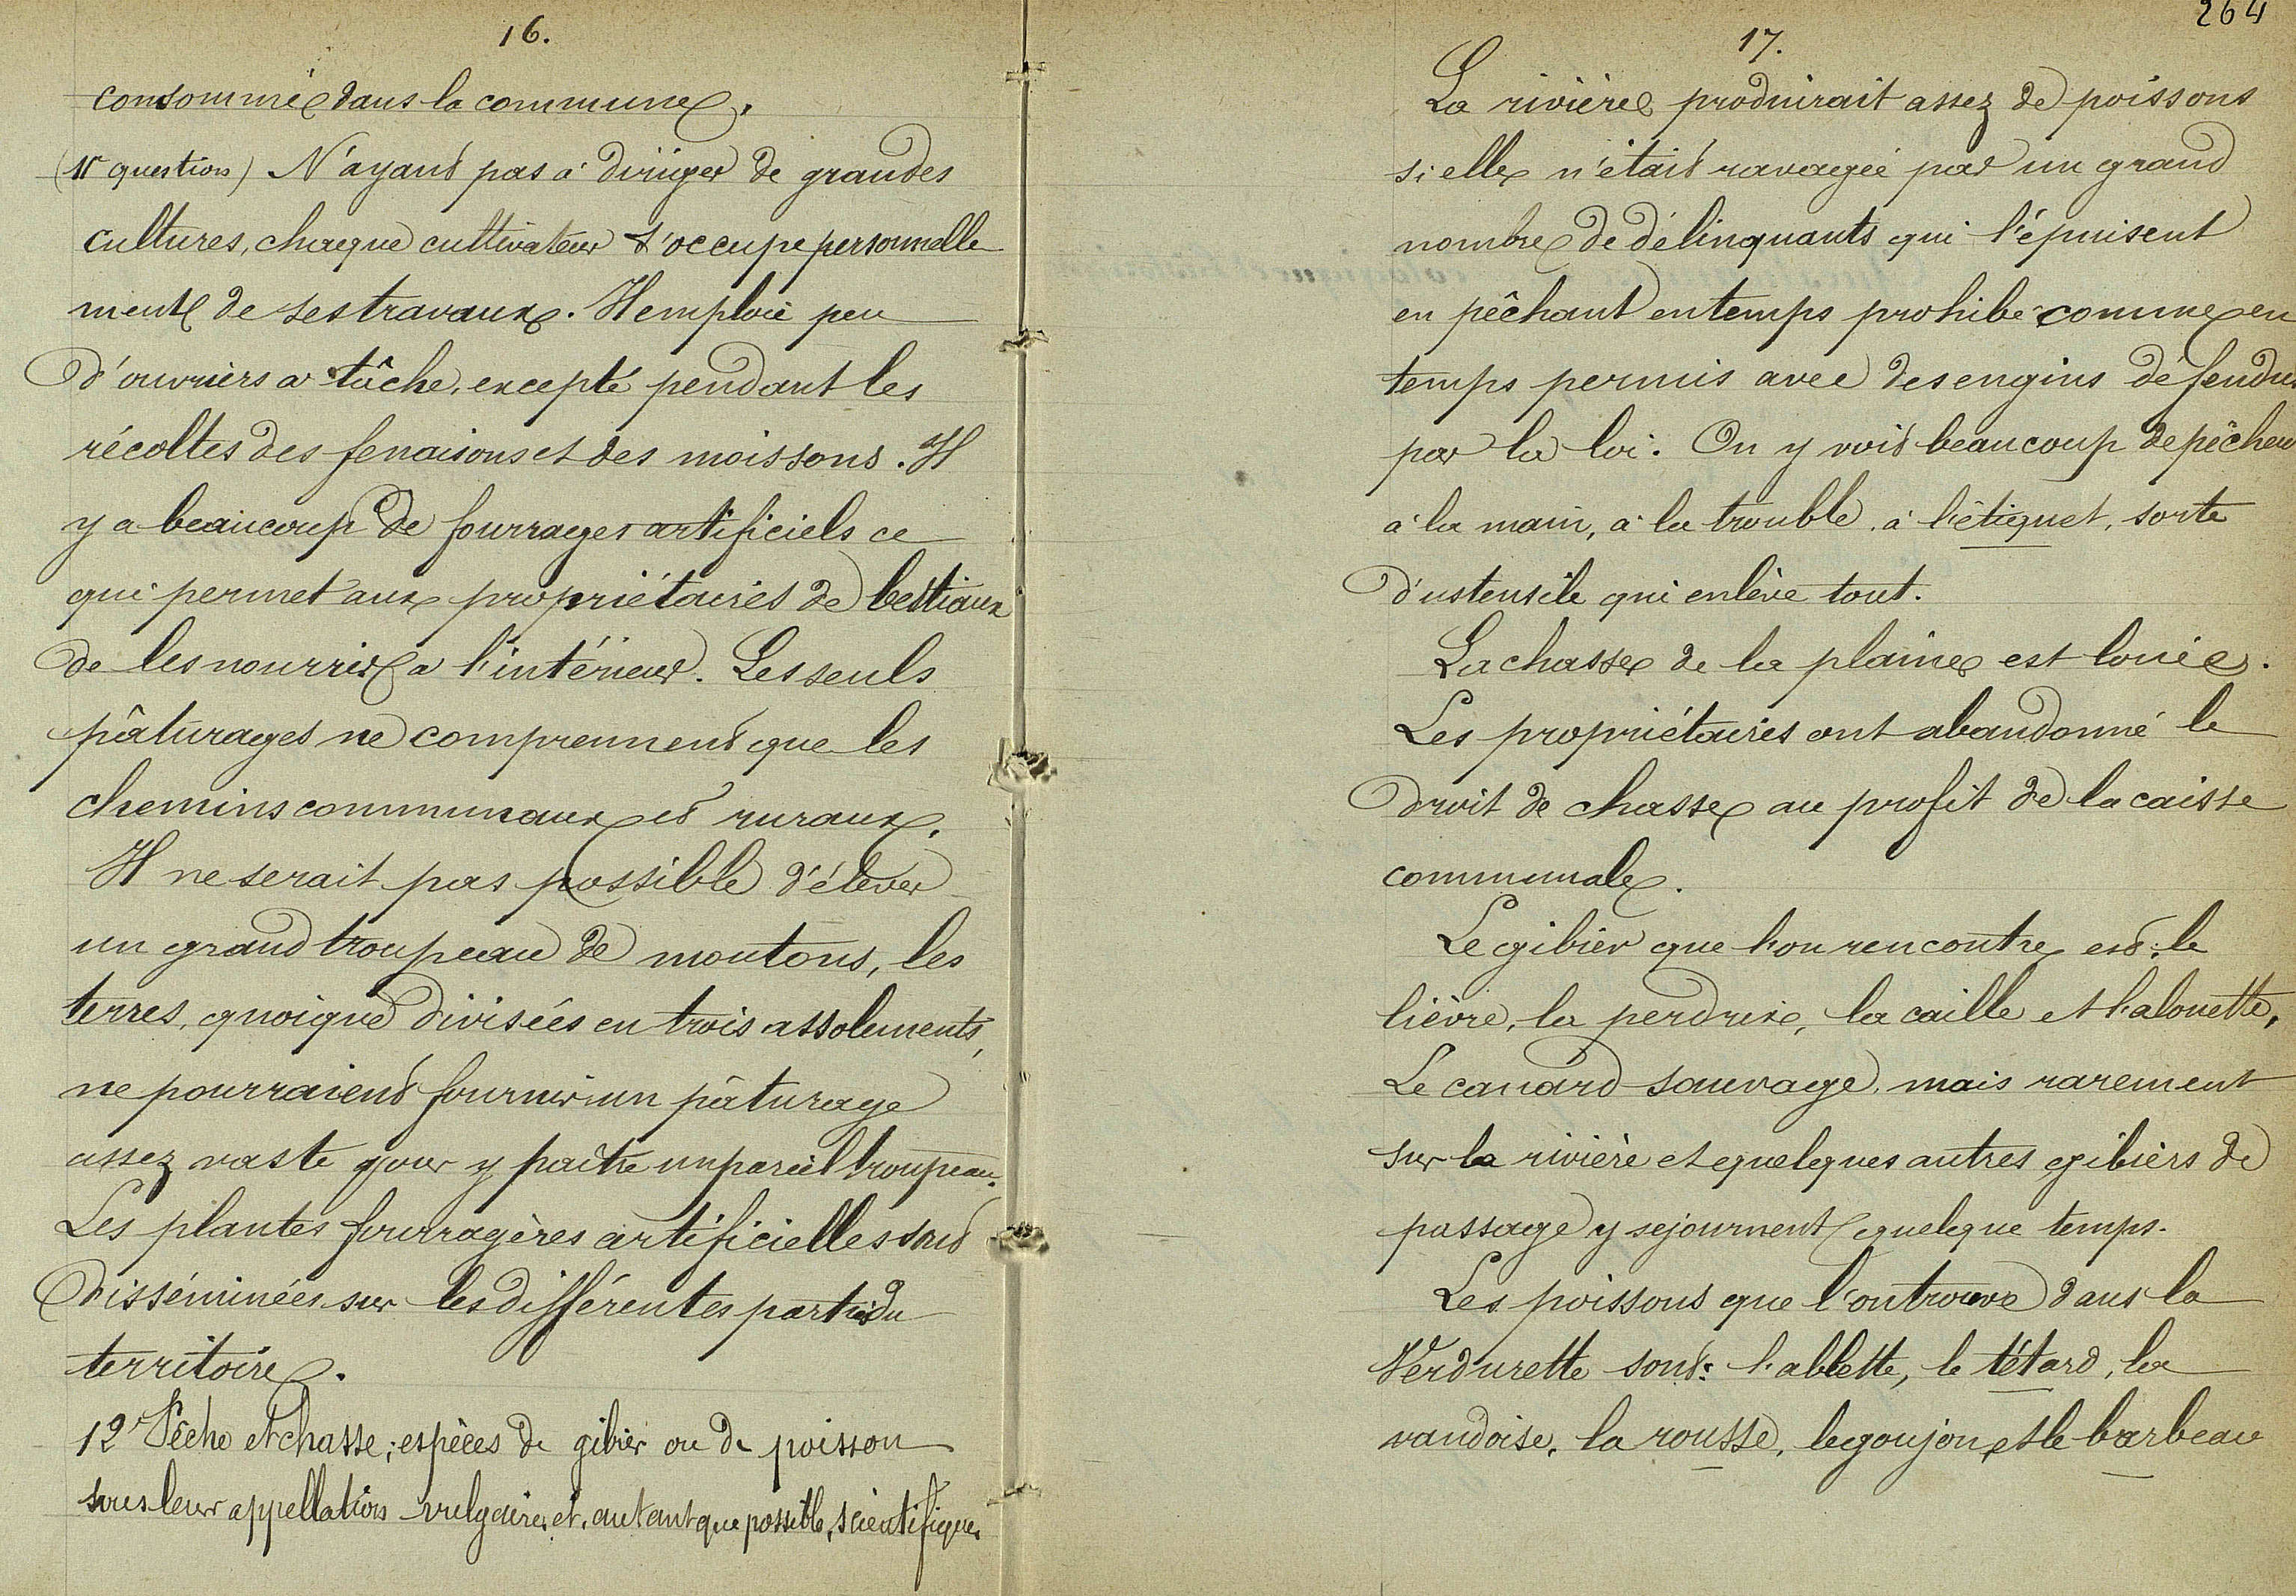 16.
consommée dans la commune.
(11e question) N'ayant pas à diriger de grandes
cultures, chaque cultivateur s'occupe personnelle
ment de ses travaux. Il emploie peu
d'ouvriers a tâche, excepté pendant les
récoltes des fenaisons et des moissons. Il
y a beaucoup de fourrages artificiels ce
qui permet aux propriétaires de bestiaux
de les nourrir a l'intérieur. Les seuls
pâturages ne comprennent que les
chemins communaux et ruraux.
Il ne serait pas possible d'élever
un grand troupeau de moutons, les
terres, quoique divisées en trois assolements,
ne pourraient fournir un pâturage
assez vaste pour y paître un pareil troupeau.
Les plantes fourragères artificielles sont
disséminées sur les différentes parties du
territoire.
12 Pêche et chasse; espèces de gibier ou de poisson
sous leur appellation vulgaire, et, autant que possible, scientifique.
264
17.
La rivière produirait assez de poissons
si elle n'était ravagée par un grand
nombre de délinquants qui l'épuisent
en pêchant en temps prohibé comme en
temps permis avec des engins défendus
par la loi. On y voit beaucoup de pêcheu
à la main, à la trouble, à l'étiquet, sorte
d'ustensile qui enlève tout.
La chasse de la plaine est louée.
Les propriétaires ont abandonné le
droit de chasse au profit de la caisse
communale.
Le gibier que l'on rencontre est: le
lièvre, la perdrix, la caille et l'alouette,
Le canard sauvage, mais rarement
sur la rivière et quelques autres gibiers de
passage y sejournent quelque temps.
Les poissons que l'on trouve dans la
Verdurette sont: l'ablette, le têtard, la
vandoise, la rousse, le goujon et le barbeau